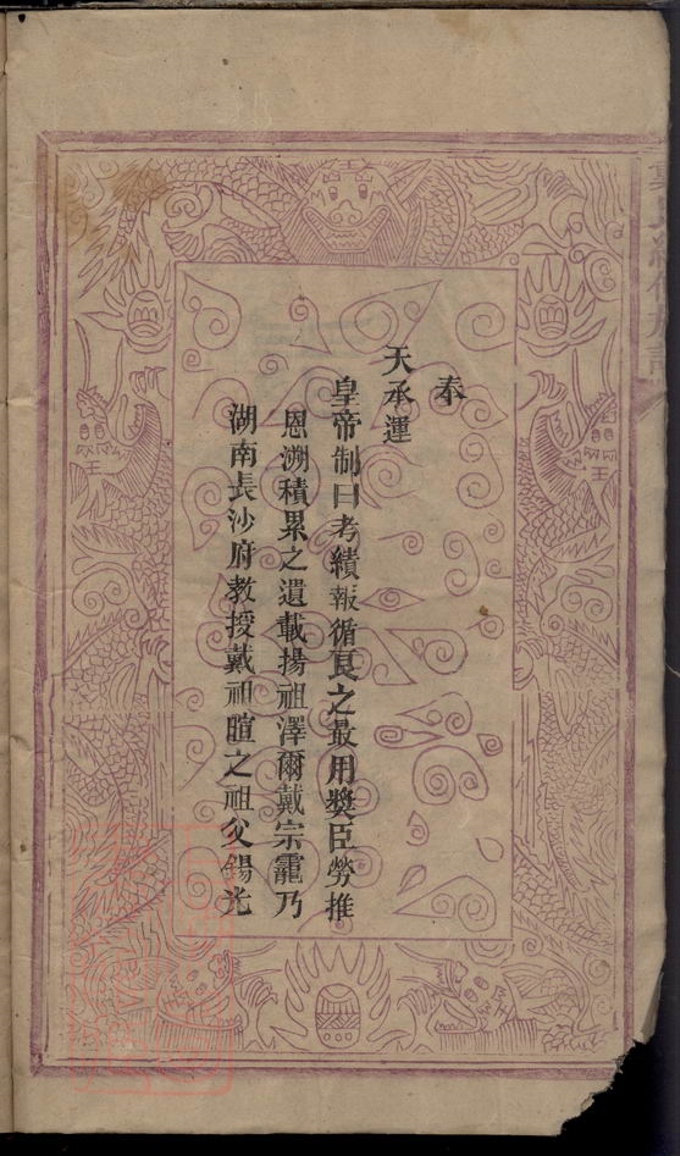 奉
天承運
皇帝制曰考績報循良之最用奬臣勞推
恩溯積累之遺載揚祖澤爾戴宗寵乃
湖南長沙府教授戴祖暄之祖父錫光